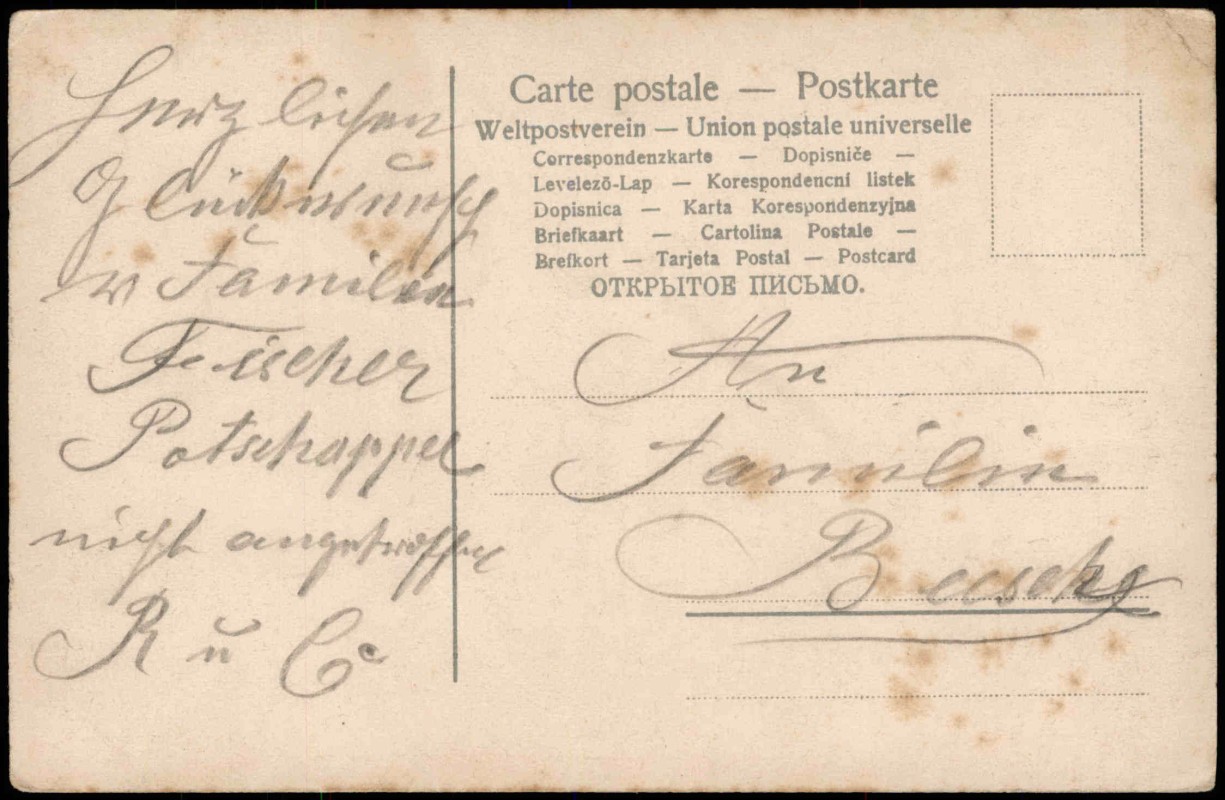 Herzlichen
Glückwunsch
v Familie
Fischer
Potschappel
nicht angetroffen
R u C
Carte postale — Postkarte
Weltpostverein — Union postale universelle
Correspondenzkarte — Dopisniče —
Levelezõ-Lap — Korespondencni listek
Dopisnica — Karta Korespondenzyjna
Briefkaart — Cartolina Postale —
Brefkort — Tarjeta Postal — Postcard
ОТКРЫТОЕ ПИСЬМО.
An
Familie